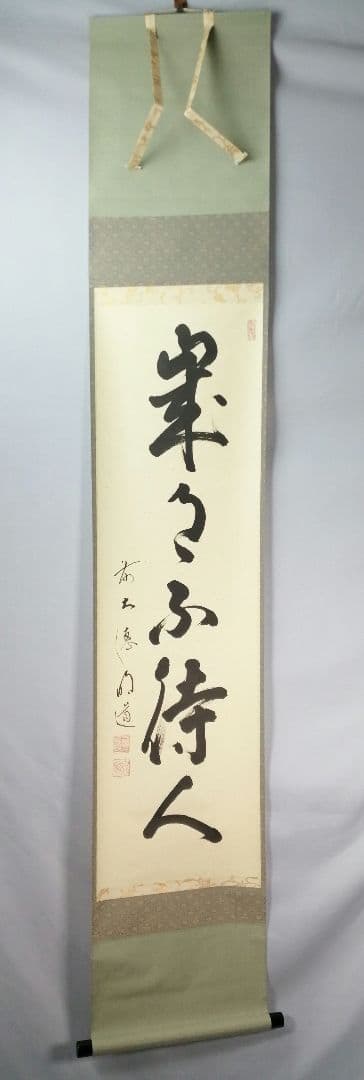 歳月不待人
前大德明道